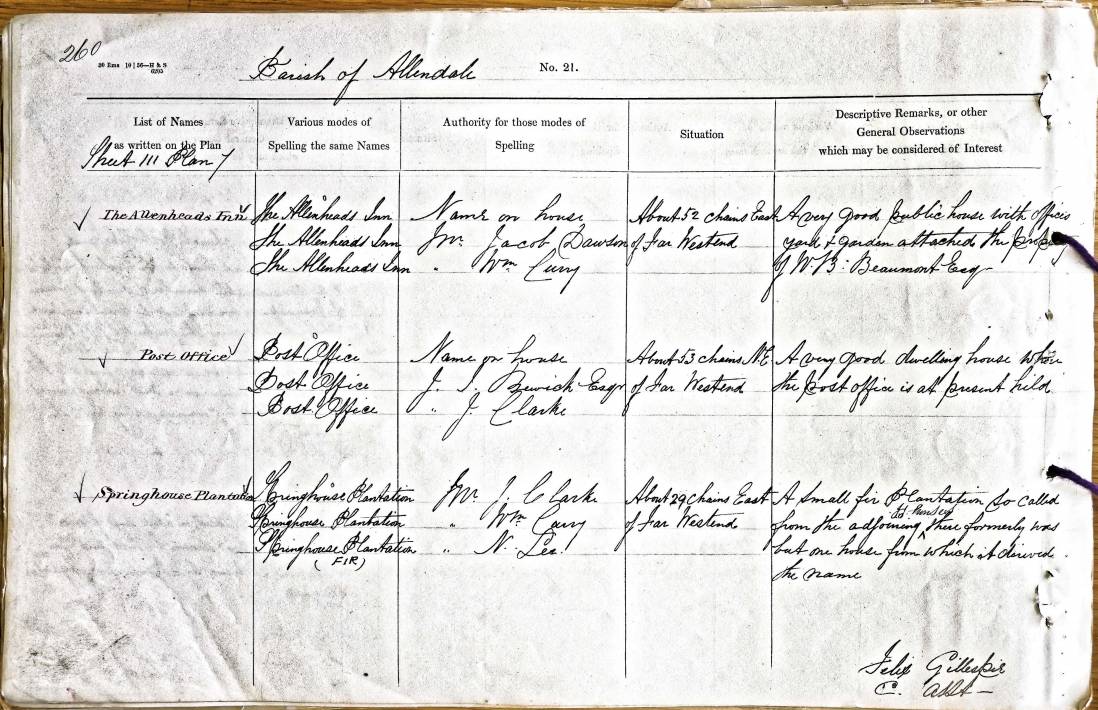 260
20 Rms 10 | 56—H & S
6205
Parish of Allendale
No. 21.
List of Names
as written on the Plan
Various modes of
Spelling the same Names
Authority for those modes of
Spelling
Situation
Descriptive Remarks, or other
General Observations
which may be considered of Interest
Sheet 111 Plan 7
The Allenheads Inn The Allenheads Inn Name on house About 52 chains East A very good public house with offices
The Allenheads Inn Mr Jacob Dawson of Far Westend yard & garden attached the
The Allenheads Inn " Wm Curry of W. B. Beaumont Esqr
Post Office Post Office Name on house About 53 chains N.E A very good dwelling house where
Post Office J. J. Bewick Esqr of Far Westend the post office is at present held
Post Office " J. Clarke
Springhouse Plantation Springhouse Plantation Mr J. Clarke About 29 chains East A small fir Plantation so called
Springhouse Plantation " Wm Curry of Far Westend from the adjoining there formerly was
Springhouse Plantation " N. Lee but one house from which it derived
(FIR) the name
Felix Gillespie
C. Asst